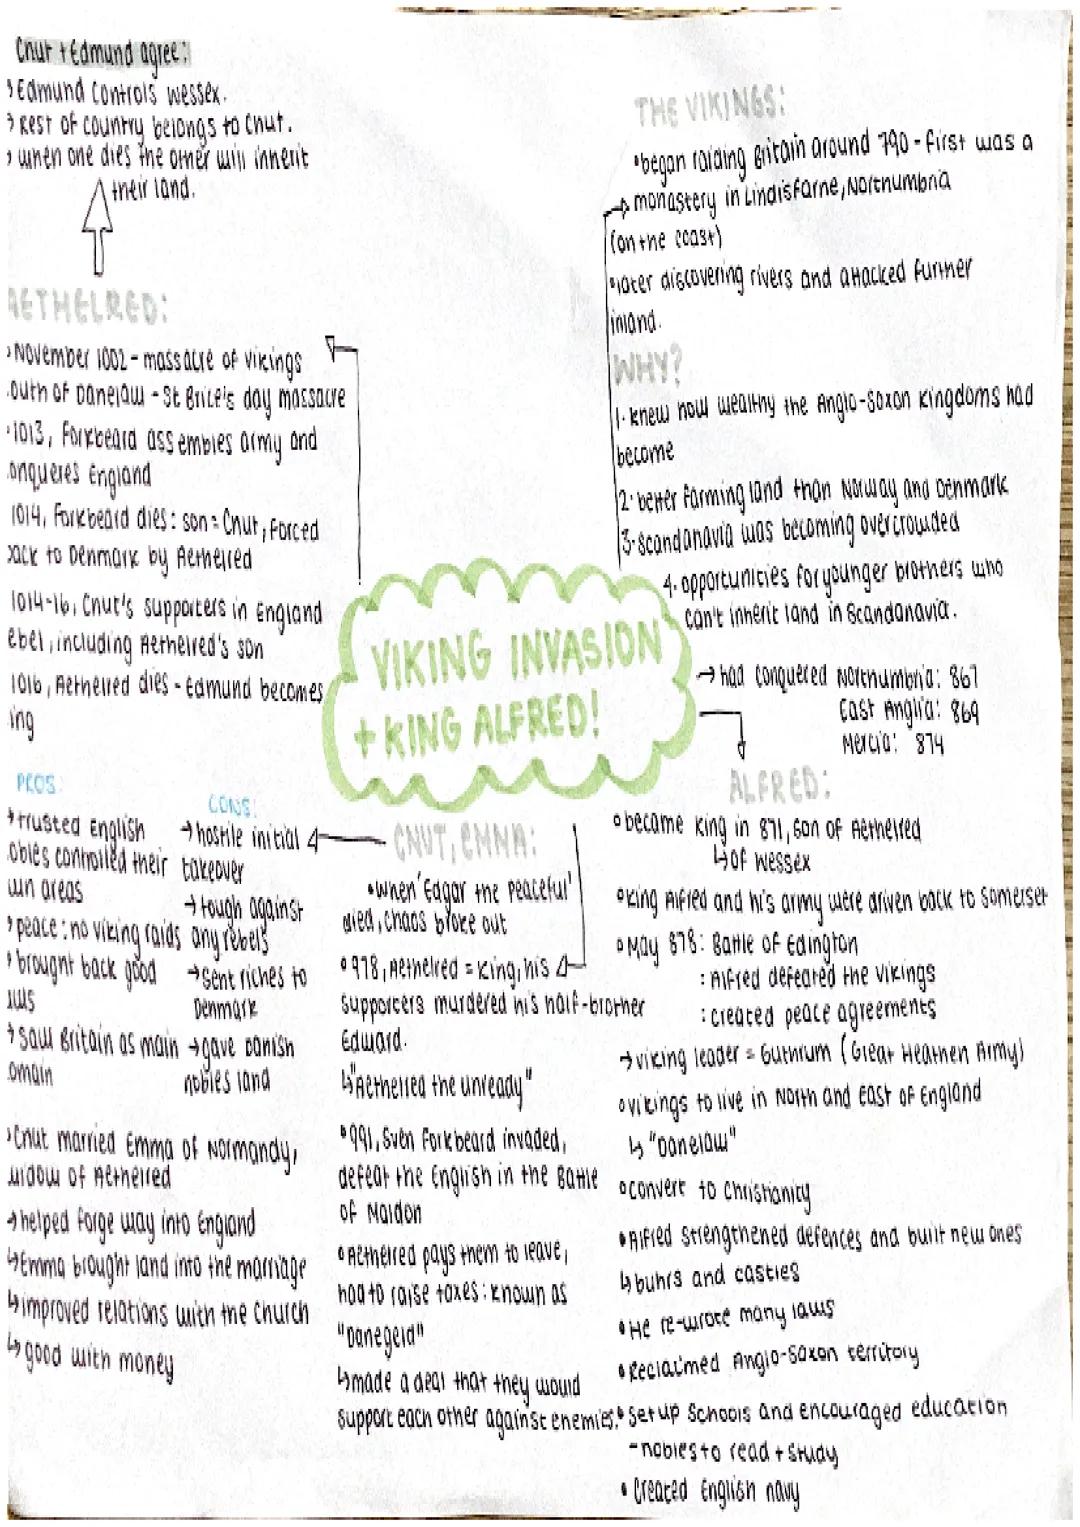 Cnut + Edmund agree:
Edmund controls Wessex.
Rest of country belongs to Cnut.
when one dies the other will inherit
their land.
AETHELRED:
November 1002 - massacre of vikings
outh of Danelaw - St Brice's day massacre
1013, Forkbeard assembles army and
onqueres England
1014, Forkbeard dies: son = Cnut, forced
back to Denmark by Aethelred
1014-16, Cnut's supporters in England
ebel, including Aethelred's son
1016, Aethelred dies - Edmund becomes
ing
PROS:
→ trusted English
obles controlled their
wn areas
→ peace: no viking raids
brought back good
aws
→ saw Britain as main
omain
CONS:
→ hostile initial
takeover
→ tough against
any rebels
→ sent riches to
Denmark
→ gave Danish
nobles land
Cnut married Emma of Normandy,
widow of Aethelred
→ helped forge way into England
↳ Emma brought land into the marriage
↳ improved relations with the Church
↳ good with money
VIKING INVASION
+ KING ALFRED!
CNUT, EMMA:
• When 'Edgar the Peaceful'
died, chaos broke out
• 978, Aethelred = King, his
supporters murdered his half-brother
Edward.
↳ "Aethelred the unready"
• 991, Sven Forkbeard invaded,
defeat the English in the Battle
of Maldon
• Aethelred pays them to leave,
had to raise taxes: known as
"Danegeld"
↳ made a deal that they would
support each other against enemies.
THE VIKINGS:
• began raiding Britain around 790 - first was a
→ monastery in Lindisfarne, Northumbria
(on the coast)
• later discovering rivers and attacked further
inland.
WHY?
1. knew how wealthy the Anglo-Saxon Kingdoms had
become
2. better farming land than Norway and Denmark
3. Scandanavia was becoming overcrowded
4. opportunities for younger brothers who
can't inherit land in Scandanavia.
→ had conquered Northumbria: 867
East Anglia: 869
Mercia: 874
ALFRED:
• became King in 871, son of Aethelred
↳ of Wessex
• King Alfred and his army were driven back to Somerset
• May 878: Battle of Edington
: Alfred defeated the vikings
: created peace agreements
→ viking leader = Guthrum (Great Heathen Army)
• vikings to live in North and East of England
↳ "Danelaw"
• convert to Christianity
• Alfred strengthened defences and built new ones
↳ buhrs and castles
• He re-wrote many laws
• Reclaimed Anglo-Saxon territory
• Set up Schools and encouraged education
- nobles to read + study
• Created English navy